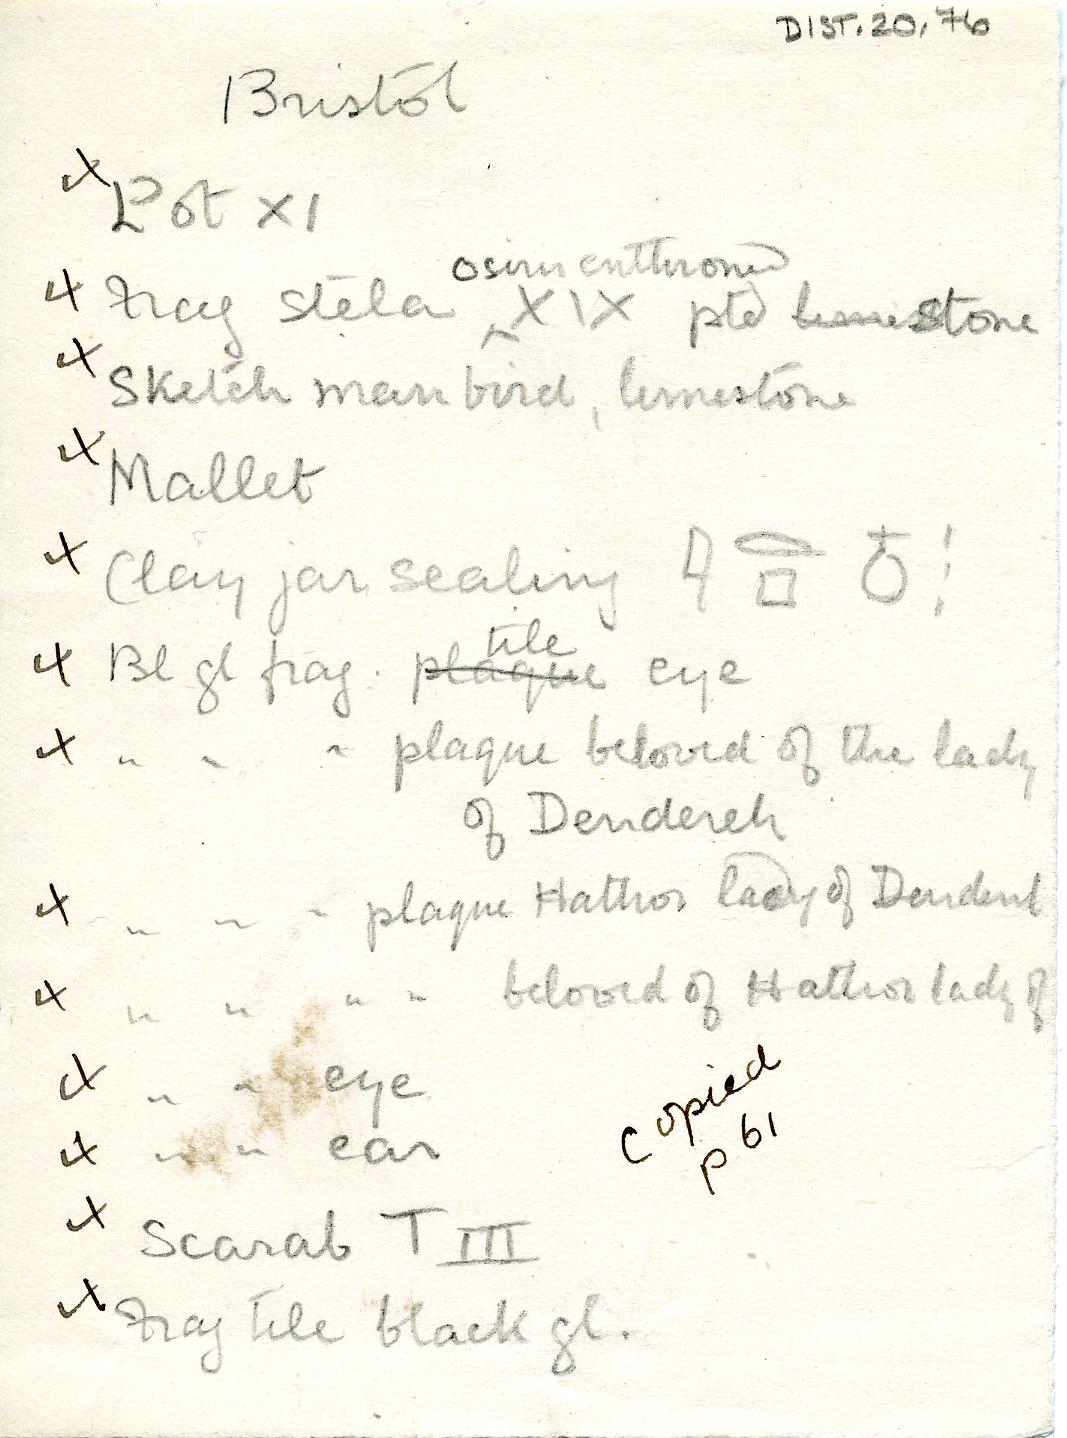 DIST.20.76
Bristol
Pot XI
Frag stela osiris enthroned XIX ptd limestone
Sketch man bird, limestone
Mallet
Clay jar sealing
Bl gl frag. plaque tile eye
" " " plaque beloved of the lady
of Dendereh
" " " plaque Hathor lady of Dendent
" " " " beloved of Hathor lady of
" " eye
" " ear
copied
p 61
Scarab T III
Frag tile black gl.